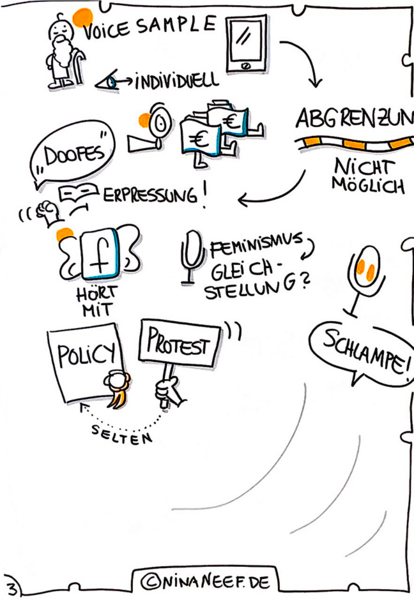 VOICE SAMPLE
INDIVIDUELL
ABGRENZUN
NICHT
MÖGLICH
"DOOFES"
€
€
ERPRESSUNG!
f
HÖRT
MIT
FEMINISMUS
GLEICH-
STELLUNG?
SCHLAMPE!
POLICY
PROTEST
SELTEN
3
©NINANEEF.DE